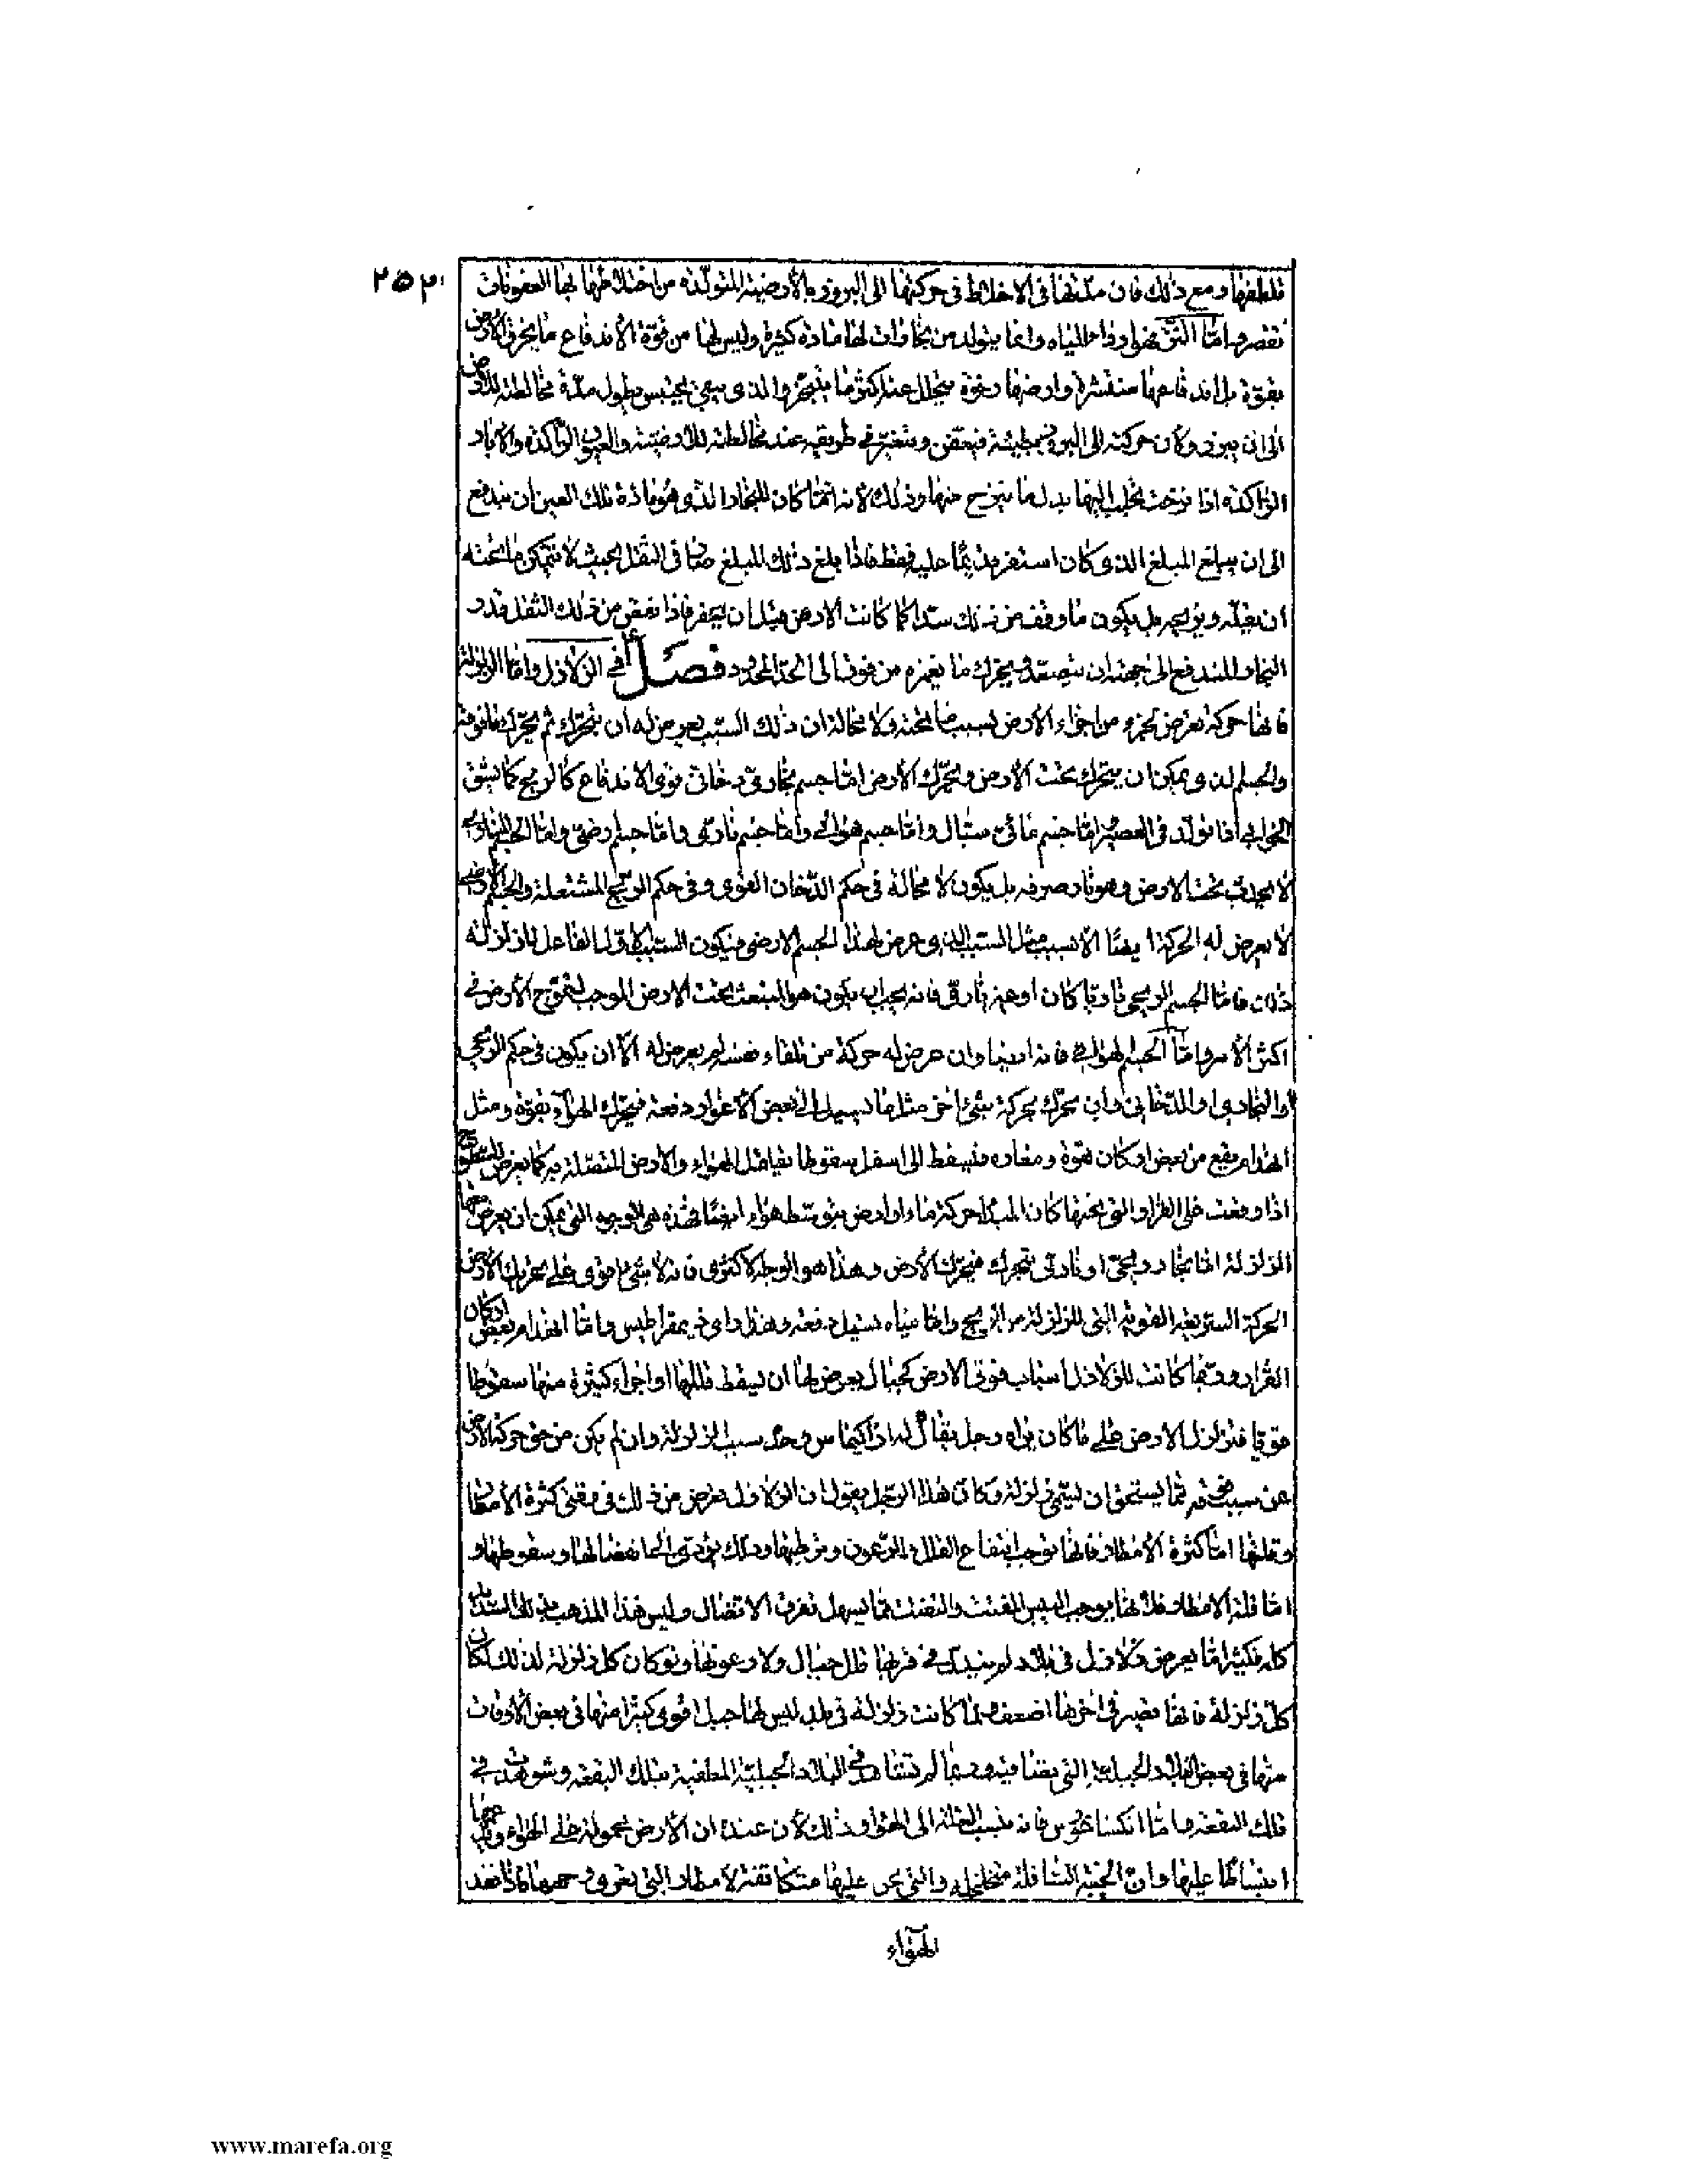 ٢٥٢
تلطفها ومع ذلك فان مدتها فى الاختلاط فى حركتها الى البروز بالأرضية المتولدة من اختلاطها بها العفونات
تقصر واما النز فهو اردأ المياه وانما يتولد من بخارات لها مادة كثيرة وليس لها من قوة الاندفاع ما يخرق الأرض
بقوة بل اندفاعها منتشرة وارضها رخوة يتحلل عنها كثر ما يتبخر والذى يبقى يحتبس بطول مدة مخالطته للأرض
الى ان يبرز ولأن حركته الى البروز بطيئة فيعفن ويتغير فى طريقه عند مخالطته للأرضية والعيون الراكدة والآبار
الراكدة اذا نزحت تجلب اليها بدل ما ينزح منها وذلك لأنه انما كان للبخار الذى هو مادة تلك العين ان يندفع
الى ان يبلغ المبلغ الذى كان استقر مذ نما عليه فقط فاذا بلغ ذلك المبلغ صار فى الثقل بحيث لا يتمكن ما تحته
ان يقله ويزيحه بل يكون ما وقف من ذلك سدا كما كانت الارض قبل ان يحفر فاذا نقص من ذلك الثقل قدر
البخار المندفع الى جهته ان يصعد ويحرك ما يغمره من فوق الى الحد المحدود فصل فى الزلازل واما الزلزلة
فانها حركة تعرض لجزء من اجزاء الأرض بسبب ما تحته ولا محالة ان ذلك السبب يعرض له ان يتحرك ثم يحرك ما فوقه
والجسم الذى يمكن ان يتحرك تحت الأرض ويحرك الأرض اما جسم بخارى دخانى قوى الاندفاع كالريح كما تشق
الخوابى اذا تولد فى العصير واما جسم مائى سيال واما جسم هوائى واما جسم نارى واما جسم ارضى واما الجسم النارى
لا يحدث تحت الارض وهو نار صرفة بل يكون لا محالة فى حكم الدخان القوى وفى حكم الريح المشتعلة والجسم الأرضى
لا يعرض له الحركة ايضا الا بسبب مثل السبب الذى عرض لهذا الجسم الارضى فيكون السبب الاول الفاعل للزلزلة
ذلك فاما الجسم الريحى ناريا كان او غير نارى فانه يجب ان يكون هو المنبعث تحت الارض الموجب لتموج الأرض فى
اكثر الأمر واما الجسم الهوائى فانه ايضا وان عرض له حركة من تلقاء نفسه لم يعرض له الا ان يكون فى حكم الريحى
والبخارى او الدخانى وان تحرك بحركة شئ اخر مثل ما يسيل الى بعض الأغوار دفعة فيحرك الهواء بقوة ومثل
انهدام يقع من بعض اركان هوة ومغارة فيسقط الى اسفل سقوطا يقابل الهواء والارض المتصلة به كما يعرض للسطوح
اذا وقعت على القرار والتى تحتها كان المبدأ حركة ماء او ارض بتوسط هواء ايضا فهذه هى الوجوه التى يمكن ان يعرض معها
الزلزلة اما بخار ريحى او نارى يتحرك فيحرك الأرض وهذا هو الوجه الاكثرى فانه لا شئ اقوى على تحريك الأرض
الحركة السريعة القوية التى للزلزلة من الريح واما مياه تسيل دفعة وهذا راى ديمقراطيس واما انهدام بعض اركان
القرار وربما كانت للزلازل اسباب فوق الارض كجبال يعرض لها ان يسقط قللها او اجزاء كبيرة منها سقوطا
قويا فتزلزل الارض على ما كان يراه رجل يقال له انكيماس وحده سبب الزلزلة وان لم يكن من حق حركة الأرض
عن سبب فوق مما يستحق ان تسمى زلزلة وكان هذا الرجل يقول ان الزلازل تعرض من ذلك فى وقتى كثرة الأمطار
وقلتها اما كثرة الأمطار فانها توجب انتقاع القلل والرعون وترطبها وذلك يؤدى الى انفصالها وسقوطها و
اما قلة الامطار فلأنها توجب اليبس المفتت والتفتت مما يسهل تفرق الاتصال وليس هذا المذهب بذلك السديد
كله فكثيرا ما يعرض زلازل فى بلاد لم يتهدم فى قربها قلل جبال ولا رعونها ولو كان كل زلزلة لذلك لكان
كل زلزلة فانها تصير فى اخرها اضعف وربما كانت زلزلة فى بلد ليس لها جبل اقوى كثيرا منها فى بعض الأوقات
منها فى بعض البلاد الجبلية التى وربما لم تشاهد فى البلاد الجبلية المطيفة بتلك البقعة وشوهدت فى
تلك البقعة واما انكساغورس فانه ينسب العلة الى الهواء وذلك لأن عنده ان الأرض محمولة على الهواء وانها
انبساطا عليها وان الجنبة السافلة متخلخلة والتى نحن عليها متكاثفة لأمطار التى فاذا نفذ
الهواء
www.marefa.org